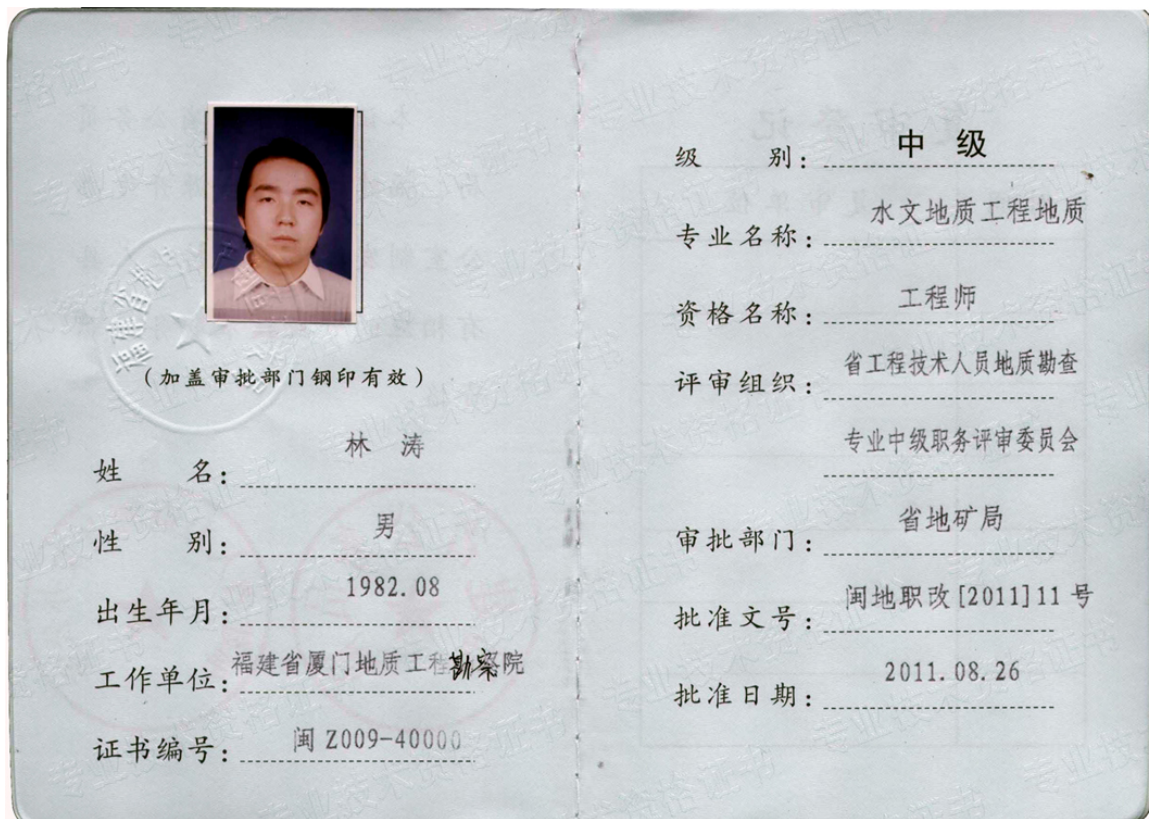 (加盖审批部门钢印有效)
姓 名: 林 涛
性 别: 男
出生年月: 1982.08
工作单位: 福建省厦门地质工程勘察院
证书编号: 闽 Z009-40000
级 别: 中 级
专业名称: 水文地质工程地质
资格名称: 工程师
评审组织: 省工程技术人员地质勘查
专业中级职务评审委员会
审批部门: 省地矿局
批准文号: 闽地职改[2011]11 号
批准日期: 2011.08.26
专业技术资格证书
福建省地